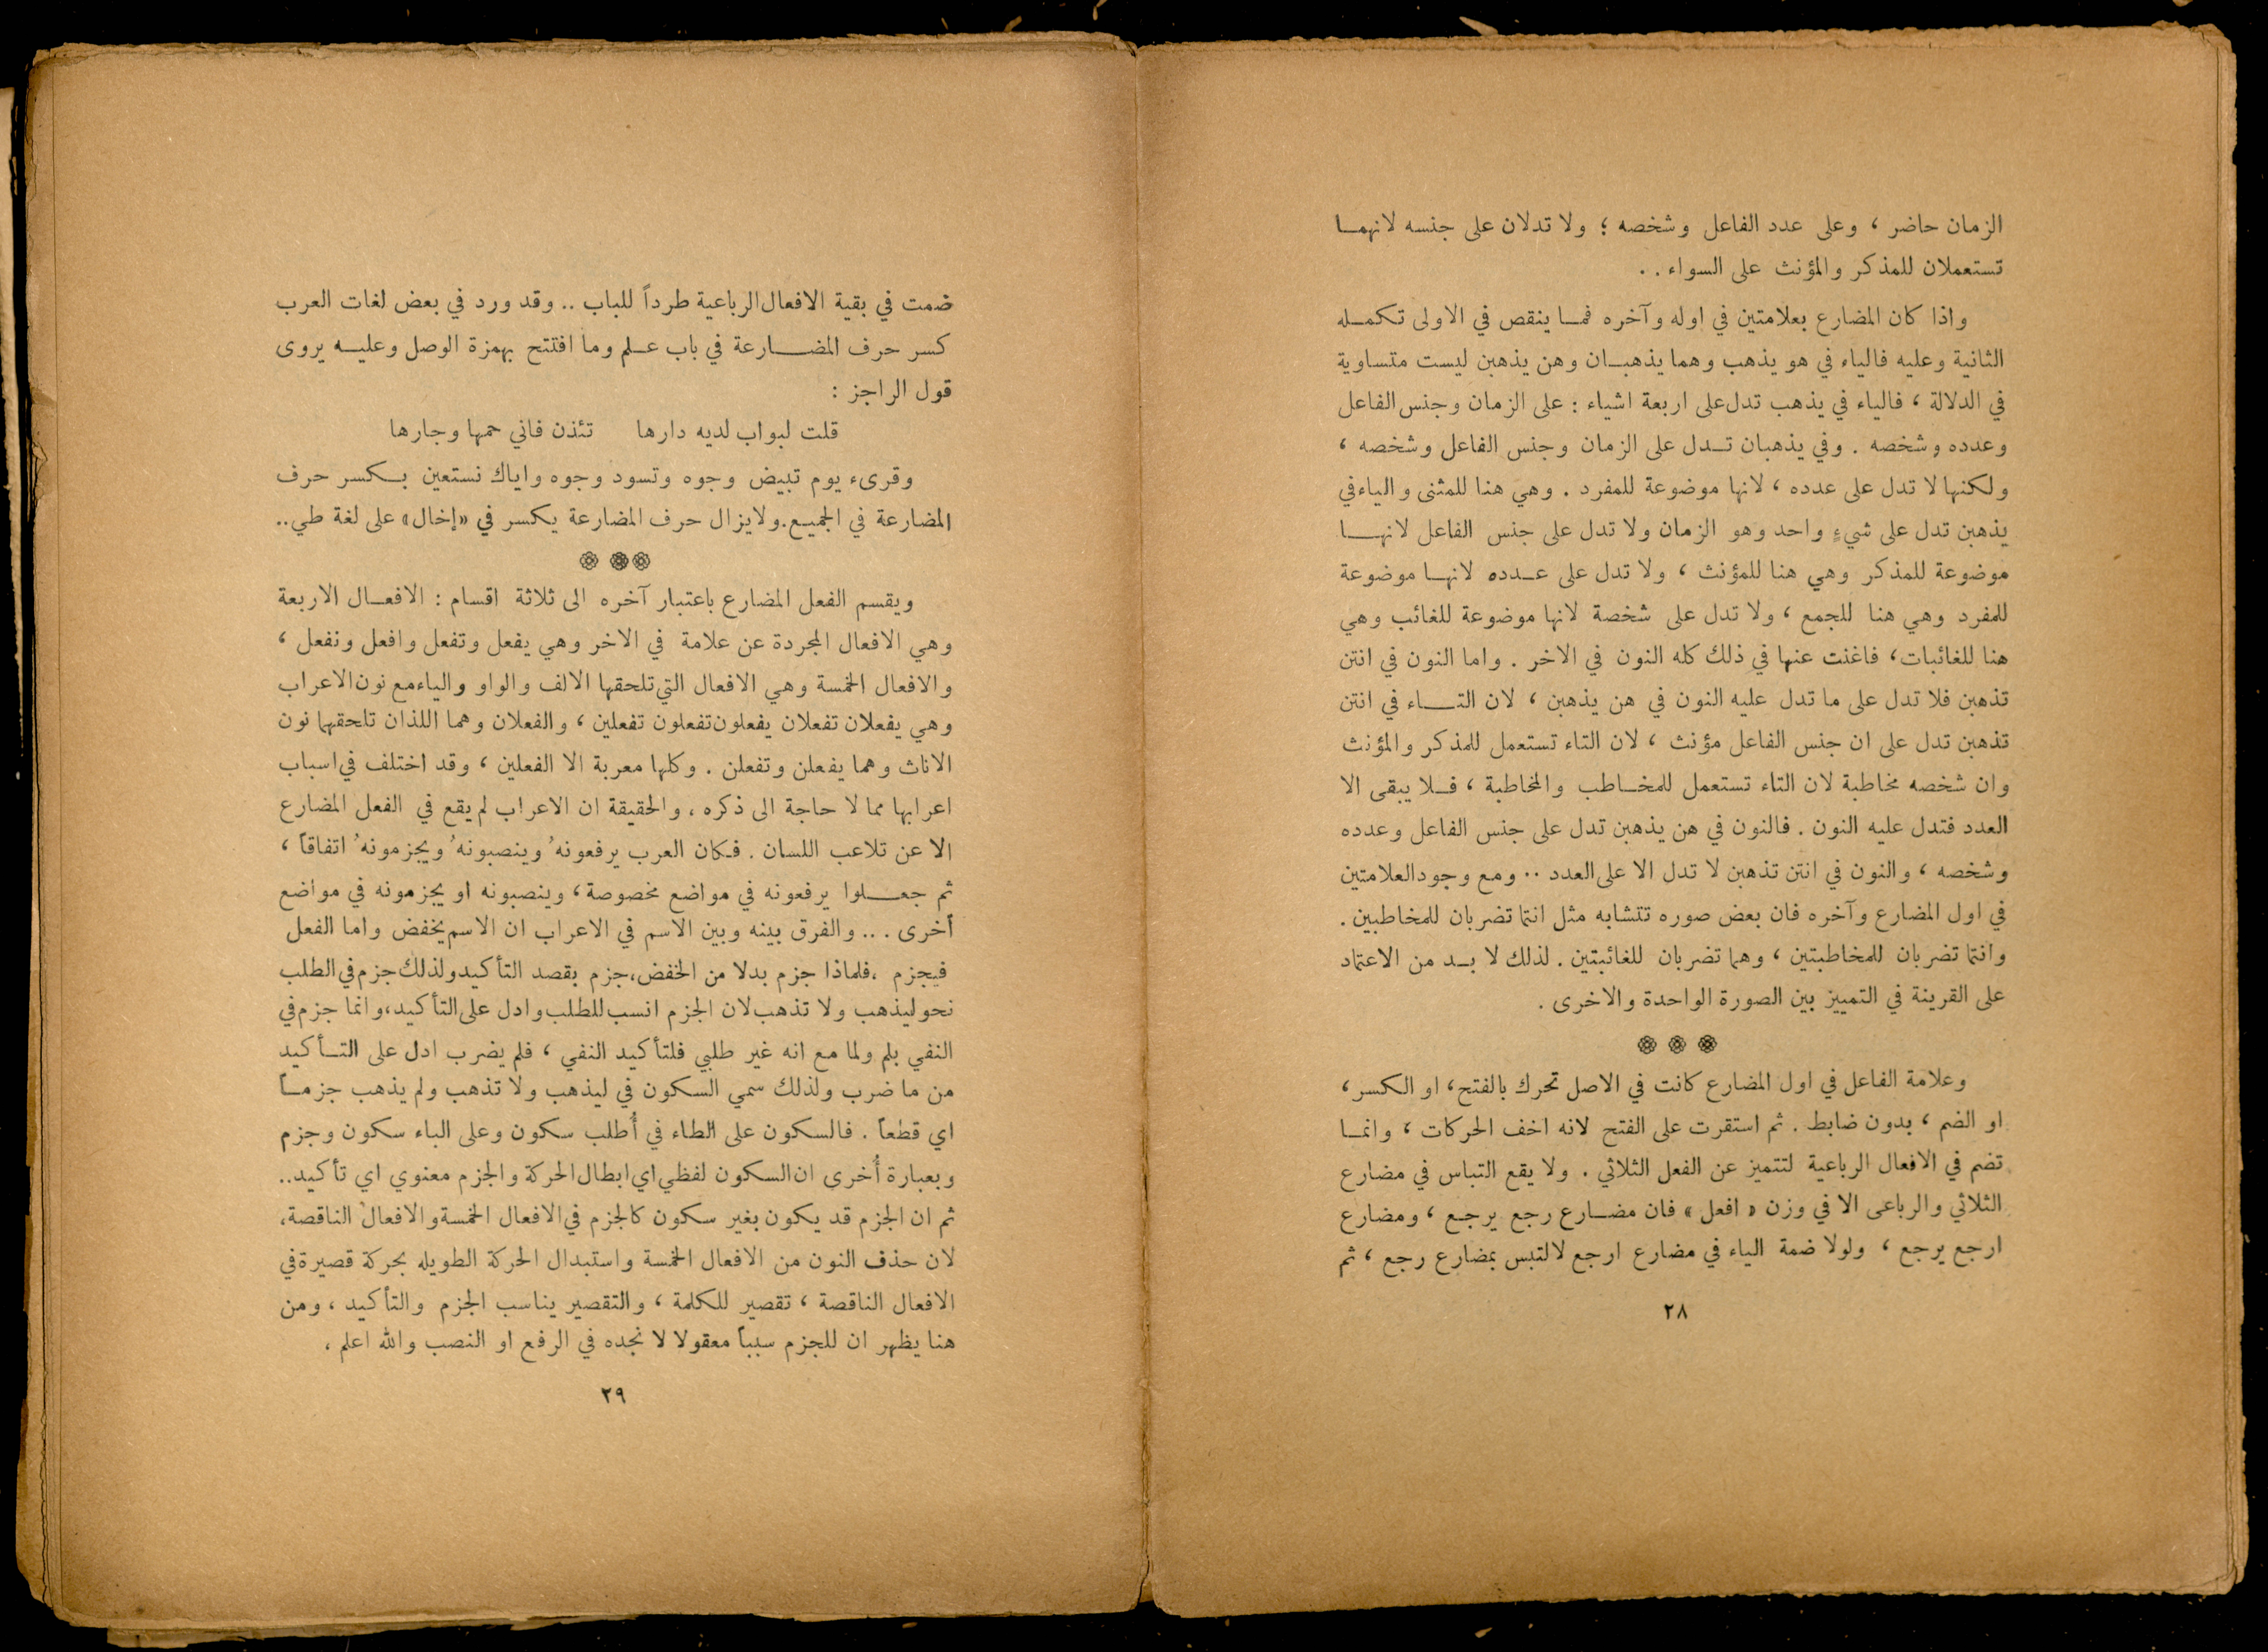 الزمان حاضر ، وعلى عدد الفاعل وشخصه ؛ ولا تدلان على جنسه لانهما
تستعملان للمذكر والمؤنث على السواء . .
واذا كان المضارع بعلامتين في اوله وآخره فما ينقص في الاولى تكمله
الثانية وعليه فالياء في هو يذهب وهما يذهبان وهن يذهبن ليست متساوية
في الدلالة ، فالياء في يذهب تدل على اربعة اشياء : على الزمان وجنس الفاعل
وعدده وشخصه . وفي يذهبان تدل على الزمان وجنس الفاعل وشخصه ،
ولكنها لا تدل على عدده ، لانها موضوعة للمفرد . وهي هنا للمثنى والياء في
يذهبن تدل على شيءٍ واحد وهو الزمان ولا تدل على جنس الفاعل لانها
موضوعة للمذكر وهي هنا للمؤنث ، ولا تدل على عدده لانها موضوعة
للمفرد وهي هنا للجمع ، ولا تدل على شخصة لانها موضوعة للغائب وهي
هنا للغائبات ، فاغنت عنها في ذلك كله النون في الاخر . واما النون في انتن
تذهبن فلا تدل على ما تدل عليه النون في هن يذهبن ، لان التاء في انتن
تذهبن تدل على ان جنس الفاعل مؤنث ، لان التاء تستعمل للمذكر والمؤنث
وان شخصه مخاطبة لان التاء تستعمل للمخاطب والمخاطبة ، فلا يبقى الا
العدد فتدل عليه النون . فالنون في هن يذهبن تدل على جنس الفاعل وعدده
وشخصه ، والنون في انتن تذهبن لا تدل الا على العدد .. ومع وجود العلامتين
في اول المضارع وآخره فان بعض صوره تتشابه مثل انتما تضربان للمخاطبين .
وانتما تضربان للمخاطبتين ، وهما تضربان للغائبتين . لذلك لا بد من الاعتماد
على القرينة في التمييز بين الصورة الواحدة والاخرى .
وعلامة الفاعل في اول المضارع كانت في الاصل تحرك بالفتح ، او الكسر ،
او الضم ، بدون ضابط . ثم استقرت على الفتح لانه اخف الحركات ، وانما
تضم في الافعال الرباعية لتتميز عن الفعل الثلاثي . ولا يقع التباس في مضارع
الثلاثي والرباعى الا في وزن « افعل » فان مضارع رجع يرجع ، ومضارع
ارجع يرجع ، ولولا ضمة الياء في مضارع ارجع لالتبس بمضارع رجع ، ثم
٢٨
ضمت في بقية الافعال الرباعية طرداً للباب .. وقد ورد في بعض لغات العرب
كسر حرف المضارعة في باب علم وما افتتح بهمزة الوصل وعليه يروى
قول الراجز :
قلت لبواب لديه دارها تئذن فاني حمها وجارها
وقرىء يوم تبيض وجوه وتسود وجوه واياك نستعين بكسر حرف
المضارعة في الجميع . ولا يزال حرف المضارعة يكسر في «إخال» على لغة طي..
ويقسم الفعل المضارع باعتبار آخره الى ثلاثة اقسام : الافعال الاربعة
وهي الافعال المجردة عن علامة في الاخر وهي يفعل وتفعل وافعل ونفعل ،
والافعال الخمسة وهي الافعال التي تلحقها الالف والواو والياء مع نون الاعراب
وهي يفعلان تفعلان يفعلون تفعلون تفعلين ، والفعلان وهما اللذان تلحقهما نون
الاناث وهما يفعلن وتفعلن . وكلها معربة الا الفعلين ، وقد اختلف في اسباب
اعرابها مما لا حاجة الى ذكره ، والحقيقة ان الاعراب لم يقع في الفعل المضارع
الا عن تلاعب اللسان . فكان العرب يرفعونهُ وينصبونهُ ويجزمونهُ اتفاقاً ،
ثم جعلوا يرفعونه في مواضع مخصوصة ، وينصبونه او يجزمونه في مواضع
أخرى . .. والفرق بينه وبين الاسم في الاعراب ان الاسم يخفض واما الفعل
فيجزم ، فلماذا جزم بدلا من الخفض ، جزم بقصد التأكيد ولذلك جزم في الطلب
نحو ليذهب ولا تذهب لان الجزم انسب للطلب وادل على التأكيد ، وانما جزم في
النفي بلم ولما مع انه غير طلبي فلتأكيد النفي ، فلم يضرب ادل على التأكيد
من ما ضرب ولذلك سمي السكون في ليذهب ولا تذهب ولم يذهب جزماً
اي قطعاً . فالسكون على الطاء في أُطلب سكون وعلى الباء سكون وجزم
وبعبارة أُخرى ان السكون لفظي اي ابطال الحركة والجزم معنوي اي تأكيد..
ثم ان الجزم قد يكون بغير سكون كالجزم في الافعال الخمسة والافعال الناقصة ،
لان حذف النون من الافعال الخمسة واستبدال الحركة الطويله بحركة قصيرة في
الافعال الناقصة ، تقصير للكلمة ، والتقصير يناسب الجزم والتأكيد ، ومن
هنا يظهر ان للجزم سبباً معقولا لا نجده في الرفع او النصب والله اعلم ،
٢٩